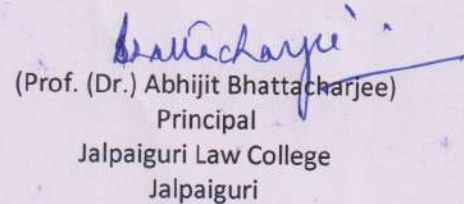 Bhattacharjee
(Prof. (Dr.) Abhijit Bhattacharjee)
Principal
Jalpaiguri Law College
Jalpaiguri